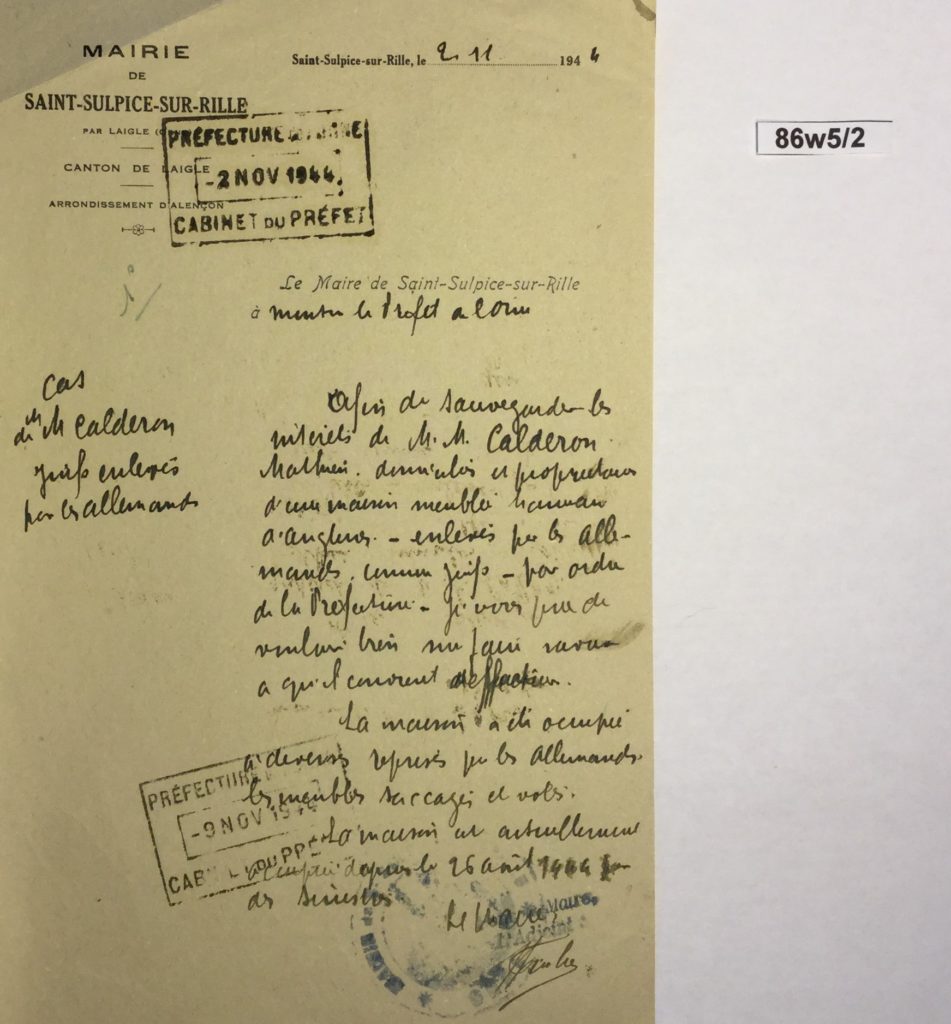 MAIRIE
DE
SAINT-SULPICE-SUR-RILLE
PAR LAIGLE
CANTON DE LAIGLE
ARRONDISSEMENT D'ALENÇON
Saint-Sulpice-sur-Rille, le 2 11 1944
PRÉFECTURE
-2 NOV 1944
CABINET DU PRÉFET
86w5/2
Le Maire de Saint-Sulpice-sur-Rille
à Monsieur le Préfet de l'Orne
Cas
de M M Calderon
juifs enlevés
par les allemands
Afin de sauvegarder les
intérêts de M. M. CALDERON
Mathieu. domiciliés et propriétaires
d'une maison meublée hameau
d'Anglures - enlevés par les Alle-
mands, comme juifs - par ordre
de la Préfecture - je vous prie de
vouloir bien me faire savoir
ce qu'il convient
La maison a été occupée
à diverses reprises par les Allemands.
les meubles saccagés et volés.
La maison est actuellement
occupée depuis le 26 août 1944 par
des sinistrés
PRÉFECTURE
-9 NOV 1944
CABINET DU PRÉFET
Le Maire,
Maire,
l'Adjoint
MAIRIE